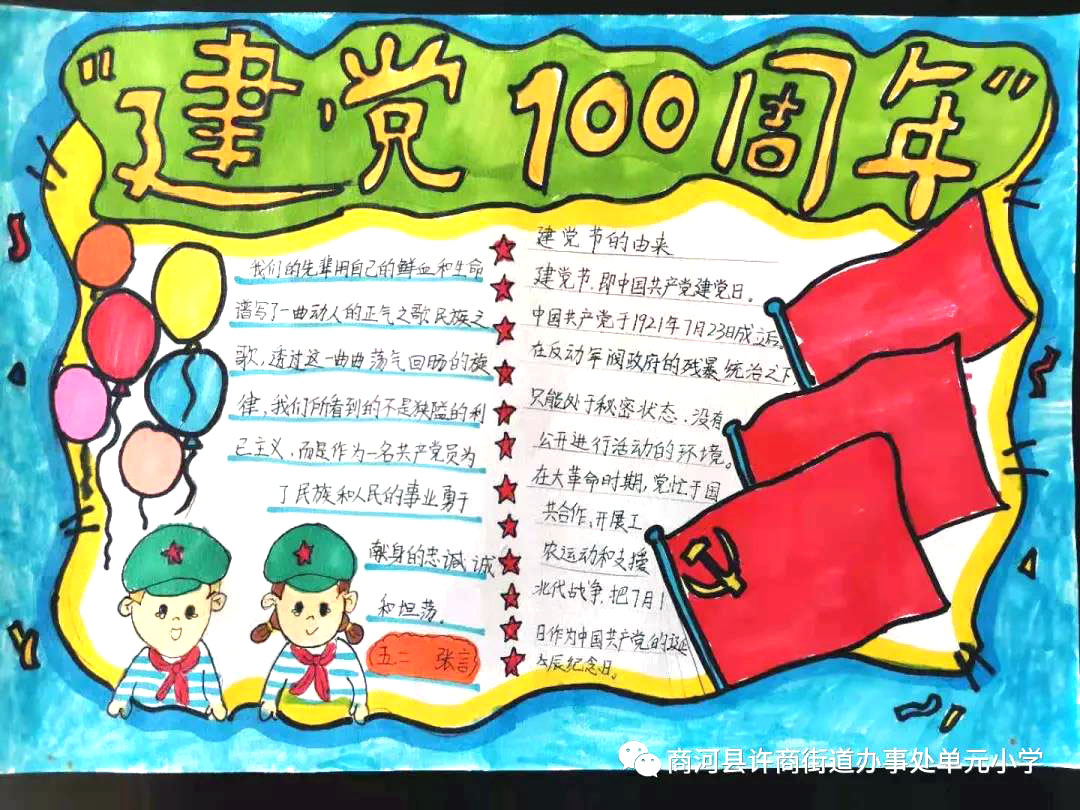 “建党100周年”
我们的先辈用自己的鲜血和生命
谱写了一曲动人的正气之歌民族之
歌，透过这一曲曲荡气回肠的旋
律，我们所看到的不是狭隘的利
己主义，而是作为一名共产党员为
了民族和人民的事业勇于
献身的忠诚 诚
和坦荡。
五.二 张言
建党节的由来
建党节，即中国共产党建党日。
中国共产党于1921年7月23日成立后。
在反动军阀政府的残暴统治之下，
只能处于秘密状态，没有
公开进行活动的环境。
在大革命时期，党忙于国
共合作、开展工
农运动和支援
北代战争，把7月1
日作为中国共产党的诞
辰纪念日。
商河县许商街道办事处单元小学